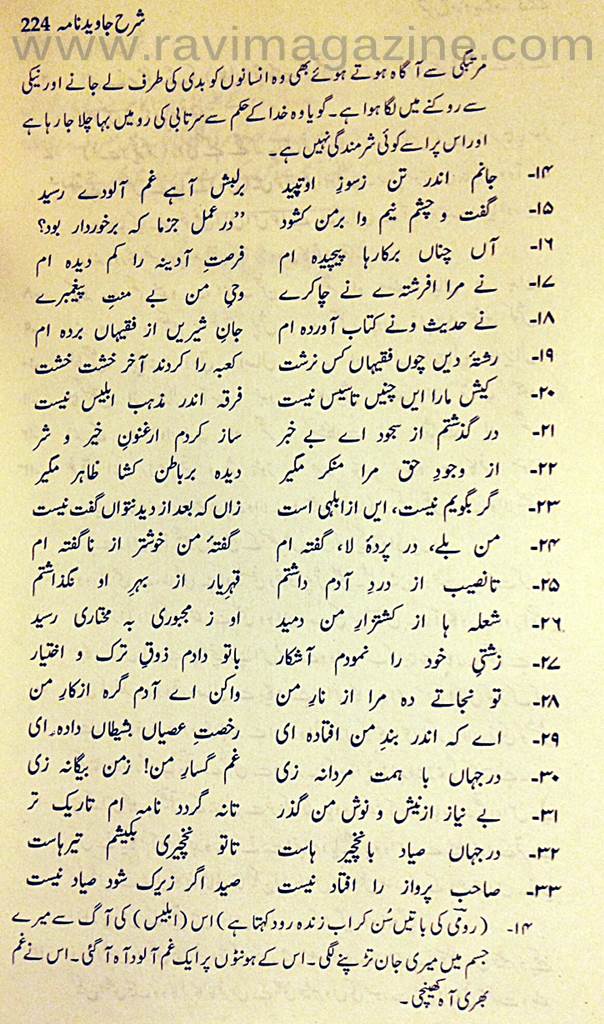 شرح جاوید نامہ 224
www.ravimagazine.com
مرتبگی سے آگاہ ہوتے ہوئے بھی وہ انسانوں کو بدی کی طرف لے جانے اور نیکی
سے روکنے میں لگا ہوا ہے۔ گویا وہ خدا کے حکم سے سرتابی کی رو میں بہا چلا جا رہا ہے
اور اس پر اسے کوئی شرمندگی نہیں ہے۔
۱۴- جانم اندر تن زسوزِ او تپید برلبش آہے غم آلودے رسید
۱۵- گفت و چشم نیم وا برمن کشود ’’در عمل جزما کہ برخوردار بود؟
۱۶- آں چناں برکارہا پیچیدہ ام فرصتِ آدینہ را کم دیدہ ام
۱۷- نے مرا افرشتہ ے نے چاکرے وحیِ من بے منتِ پیغمبرے
۱۸- نے حدیث ونے کتاب آوردہ ام جانِ شیریں از فقیہاں بردہ ام
۱۹- رشتۂ دیں چوں فقیہاں کس نرشت کعبہ را کردند آخر خشت خشت
۲۰- کیش مارا ایں چنیں تاسیس نیست فرقہ اندر مذہب ابلیس نیست
۲۱- در گذشتم از سجود اے بے خبر ساز کردم ارغنونِ خیر و شر
۲۲- از وجودِ حق مرا منکر مگیر دیدہ برباطن کشا ظاہر مگیر
۲۳- گر بگویم نیست، ایں از ابلہی است زاں کہ بعد از دید نتواں گفت نیست
۲۴- من بلے، در پردۂ لا، گفتہ ام گفتۂ من خوشتر از نا گفتہ ام
۲۵- تانصیب از دردِ آدم داشتم قہرِ یار از بہرِ او نگذاشتم
۲۶- شعلہ ہا از کشتزارِ من دمید او ز مجبوری بہ مختاری رسید
۲۷- زشتیِ خود را نمودم آشکار باتو دادم ذوقِ ترک و اختیار
۲۸- تو نجاتے دہ مرا از نارِ من واکن اے آدم گرہ از کارِ من
۲۹- اے کہ اندر بندِ من افتادہ ای رخصتِ عصیاں بشیطاں دادہ ای
۳۰- درجہاں با ہمت مردانہ زی غم گسارِ من! زمن بیگانہ زی
۳۱- بے نیاز از نیش و نوش من گذر تانہ گردد نامہ ام تاریک تر
۳۲- درجہاں صیاد با نخچیر ہاست تاتو نخچیری بکیشم تیرہاست
۳۳- صاحب پرواز را افتاد نیست صید اگر زیرک شود صیاد نیست
۱۴- (رومیؔ کی باتیں سُن کر اب زندہ رود کہتا ہے) اس (ابلیس) کی آگ سے میرے
جسم میں میری جان تڑپنے لگی۔ اس کے ہونٹوں پر ایک غم آلود آہ آ گئی۔ اس نے غم
بھری آہ کھینچی۔